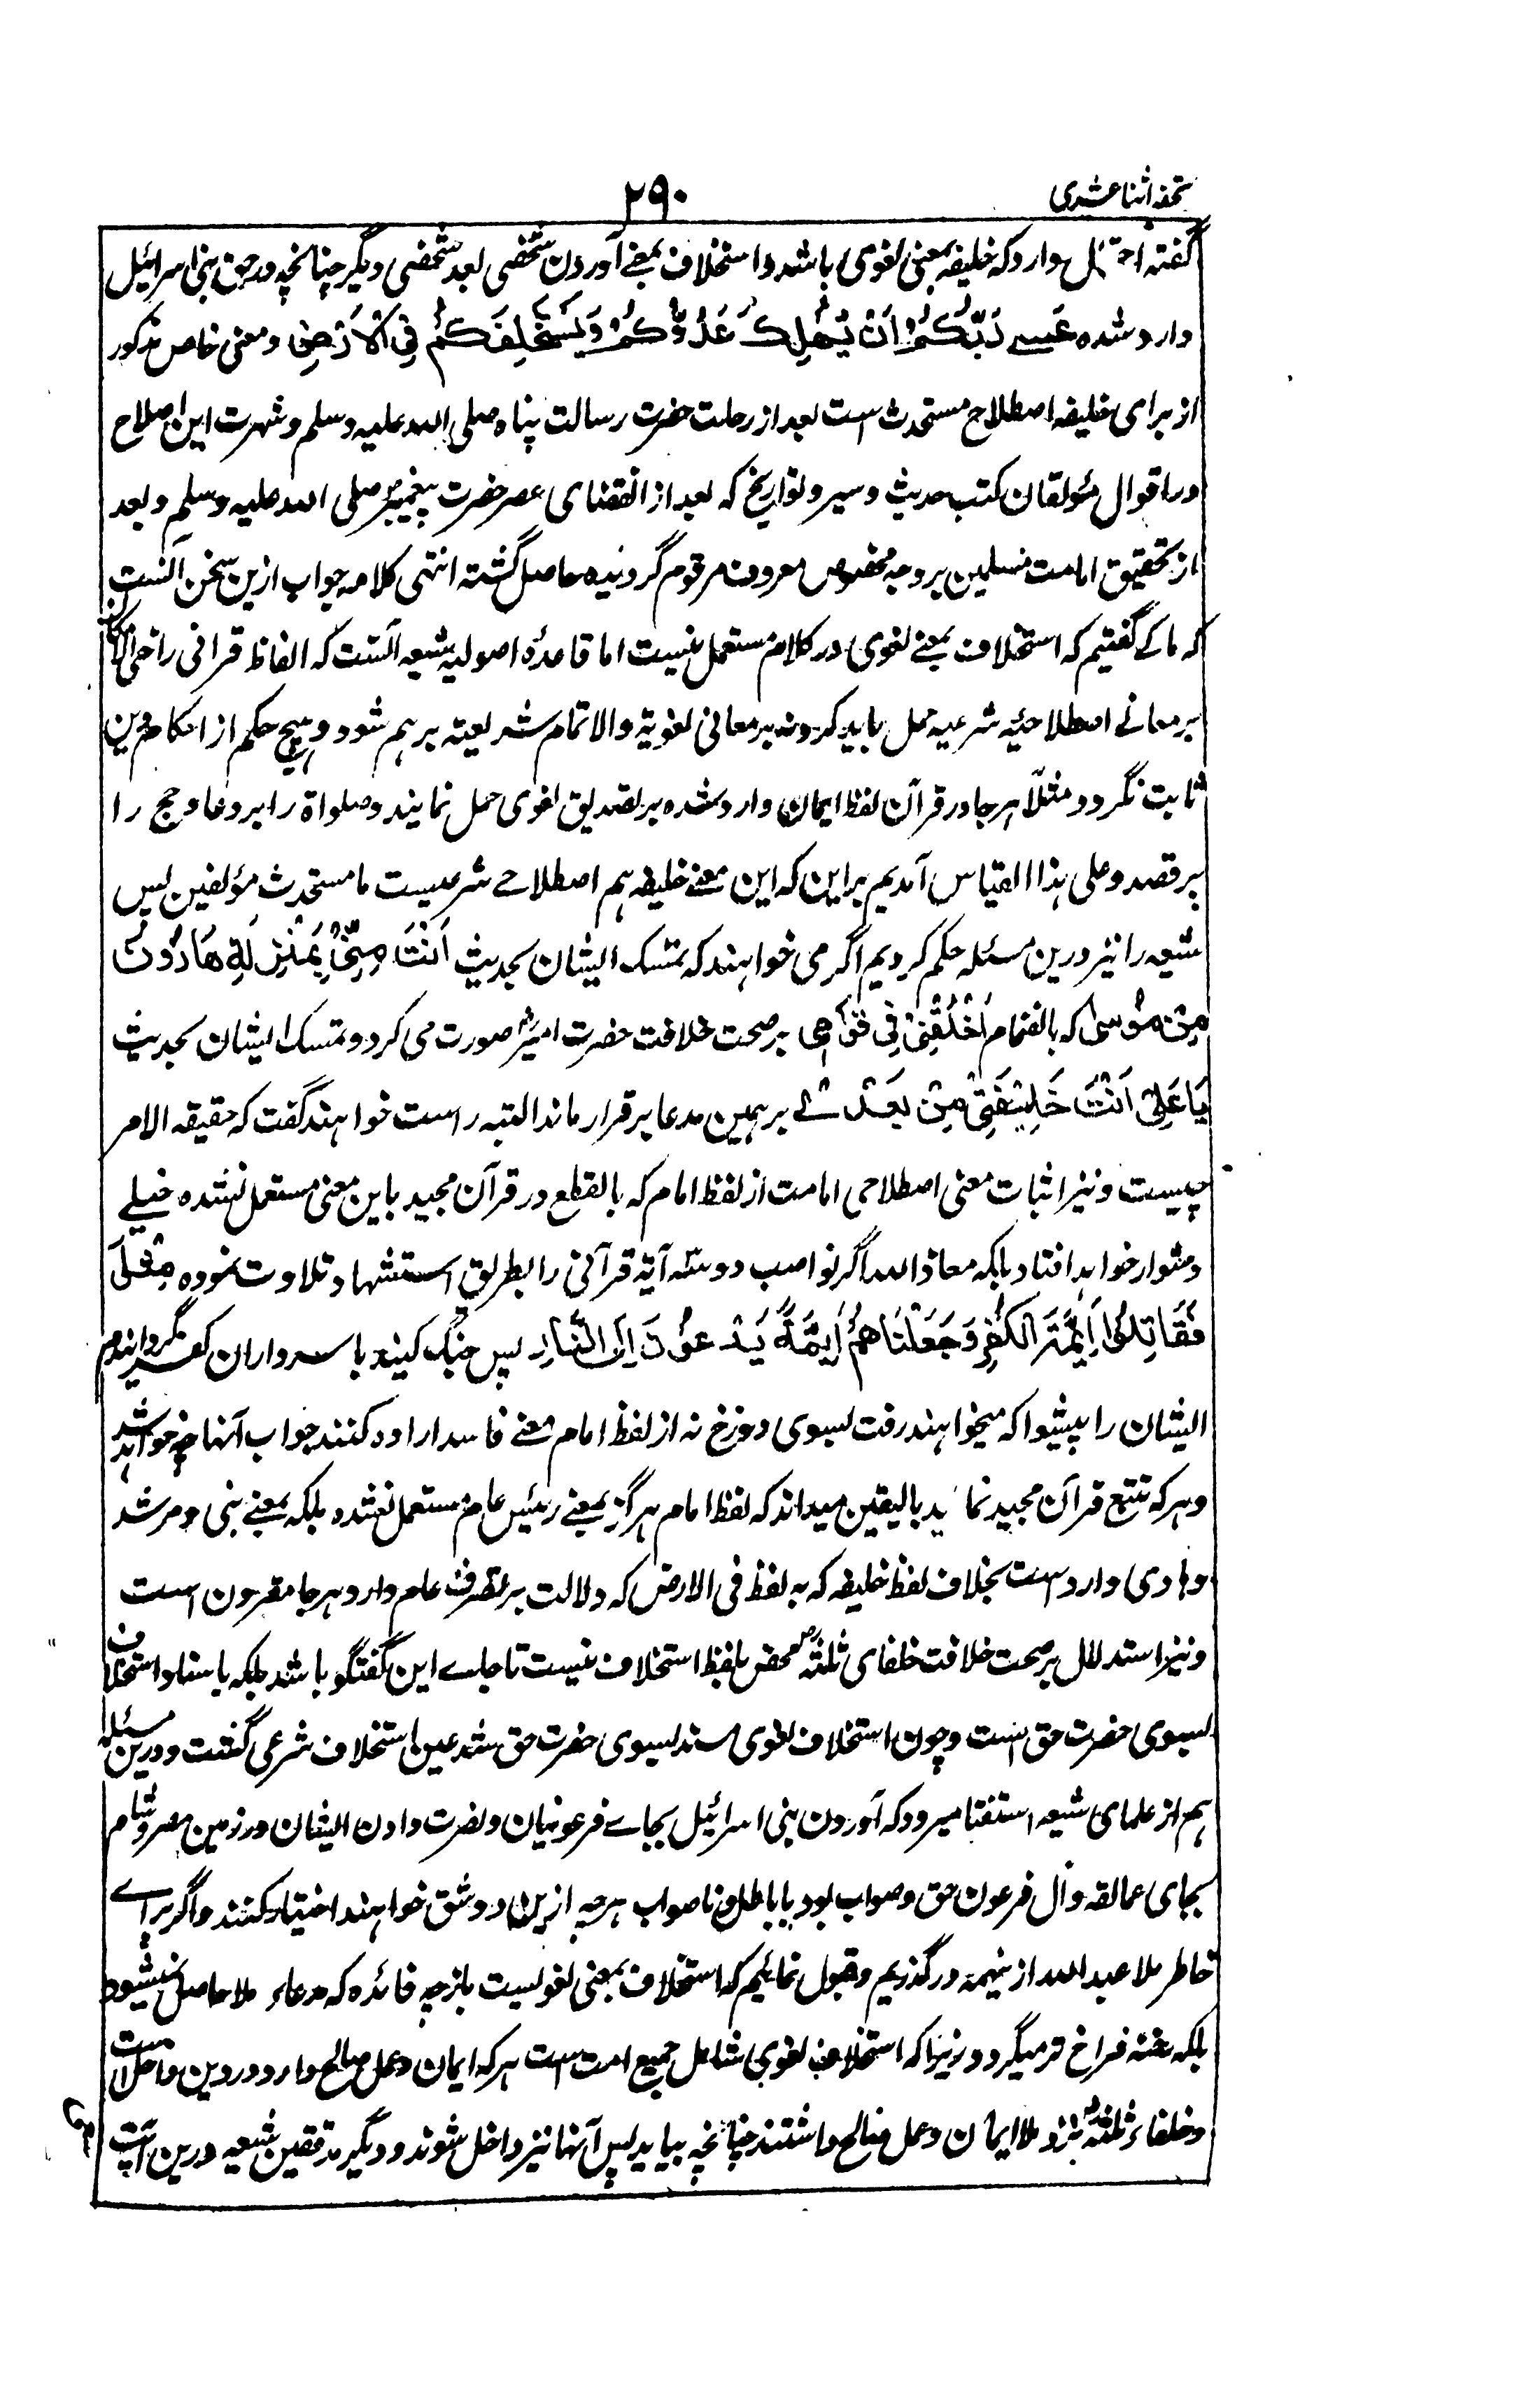 تحفه اثنا عشری
۲۹۰
گفته احتمال دارد که خلیفه بمعنی لغوی باشد و استخلاف بمعنے آوردن شخصی بعد شخصی دیگر چنانچه در حق بنی اسرائیل
وارد شده عَسٰے رَبُّكُمْ اَنْ يُهْلِكَ عَدُوَّكُمْ وَيَسْتَخْلِفَكُمْ فِی الْاَرْضِ و معنی خاص مذکور
از برای خلیفه اصطلاح مستحدث است بعد از رحلت حضرت رسالت پناه صلی الله علیه وسلم و شهرت این اصطلاح
در اقوال مؤلفان کتب حدیث و سیر و تواریخ که بعد از انقضای عصر حضرت پیغمبر صلی الله علیه وسلم و بعد
از تحقیق امامت مسلمین بر وجه مخصوص معروف مرقوم گردیده حاصل گشته انتهی کلامه جواب ازین سخن آنست
که ما کے گفتیم که استخلاف بمعنے لغوی در کلام مستعمل نیست اما قاعدهٔ اصولیه شیعه آنست که الفاظ قرانی را حتی الامکان
بر معانے اصطلاحیه شرعیه حمل باید کرد نه بر معانی لغویة والا تمام شریعته برهم شود و هیچ حکم از احکام دین
ثابت نگردد مثلاً هر جا در قرآن لفظ ایمان وارد شده بر تصدیق لغوی حمل نمایند و صلواة را بر دعا و حج را
بر قصد و علی هذا القیاس آمدیم براین که این معنے خلیفه هم اصطلاحے شرعیست یا مستحدث مؤلفین پس
شیعه را نیز درین مسئله حکم کردیم اگر می خواهند که تمسک ایشان بحدیث اَنْتَ مِنِّیْ بِمَنْزِلَةِ هَارُوْنَ
مِنْ مُوْسٰی که بانضمام اُخْلُفْنِیْ فِیْ قَوْمِی بر صحت خلافت حضرت امیر صورت می گرد و تمسک ایشان بحدیث
یَا عَلِیُّ اَنْتَ خَلِیْفَتِیْ مِنْ بَعْدِیْ بر همین مدعا برقرار ماند البته راست خواهند گفت که حقیقه الامر
چیست و نیز اثبات معنی اصطلاحی امامت از لفظ امام که بالقطع در قرآن مجید باین معنی مستعمل نشده خیلے
دشوار خواهد افتاد بلکه معاذ الله اگر نواصب دو سه آیة قرآنی را بطریق استشهاد تلاوت نموده مِثْلَ
فَقَاتِلُوْا اَئِمَّةَ الْکُفْرِ وَجَعَلْنَاهُمْ اَئِمَّةً یَدْعُوْنَ اِلَی النَّارِ پس جنگ کنید با سرداران کفر گردانیدیم
ایشان را پیشوا که میخواهند رفت بسوی دوزخ نه از لفظ امام معنے فاسد اراده کنند جواب آنها چه خواهد شد
و هر که تتبع قرآن مجید نماید بالیقین میداند که لفظ امام هرگز بمعنے رئیس عام مستعمل نشده بلکه بمعنے نبی و مرشد
و هادی وارد است بخلاف لفظ خلیفه که به لفظ فی الارض که دلالت بر تصرف عام دارد هر جا مقرون است
و نیز استدلال بر صحت خلافت خلفای ثلثه محض بلفظ استخلاف نیست تا جاے این گفتگو باشد بلکه باسناد استخلاف
بسوی حضرت حق است و چون استخلاف لغوی مسند بسوی حضرت حق شد عین استخلاف شرعی گشت و درین مسئله
هم از علمای شیعه استفتا میرود که آوردن بنی اسرائیل بجاے فرعونیان و نصرت دادن ایشان در زمین مصر و شام
بجای عمالقه و آل فرعون حق و صواب بود یا باطل و ناصواب هرچه ازین دو شق خواهند اختیار کنند و اگر براے
خاطر ملا عبد الله ازینهمه درگذریم و قبول نمائیم که استخلاف بمعنی لغویست باز چه فائده که مدعاء ملا حاصل نمیشود
بلکه رخنه فراخ تر میگردد زیرا که استخلاف لغوی شامل جمیع امت است هر که ایمان و عمل صالح دارد درین داخل است
و خلفاء ثلثه نزد ملا ایمان و عمل صالح داشتند چنانچه بیاید پس آنها نیز داخل شوند و دیگر مدققین شیعه درین آیت